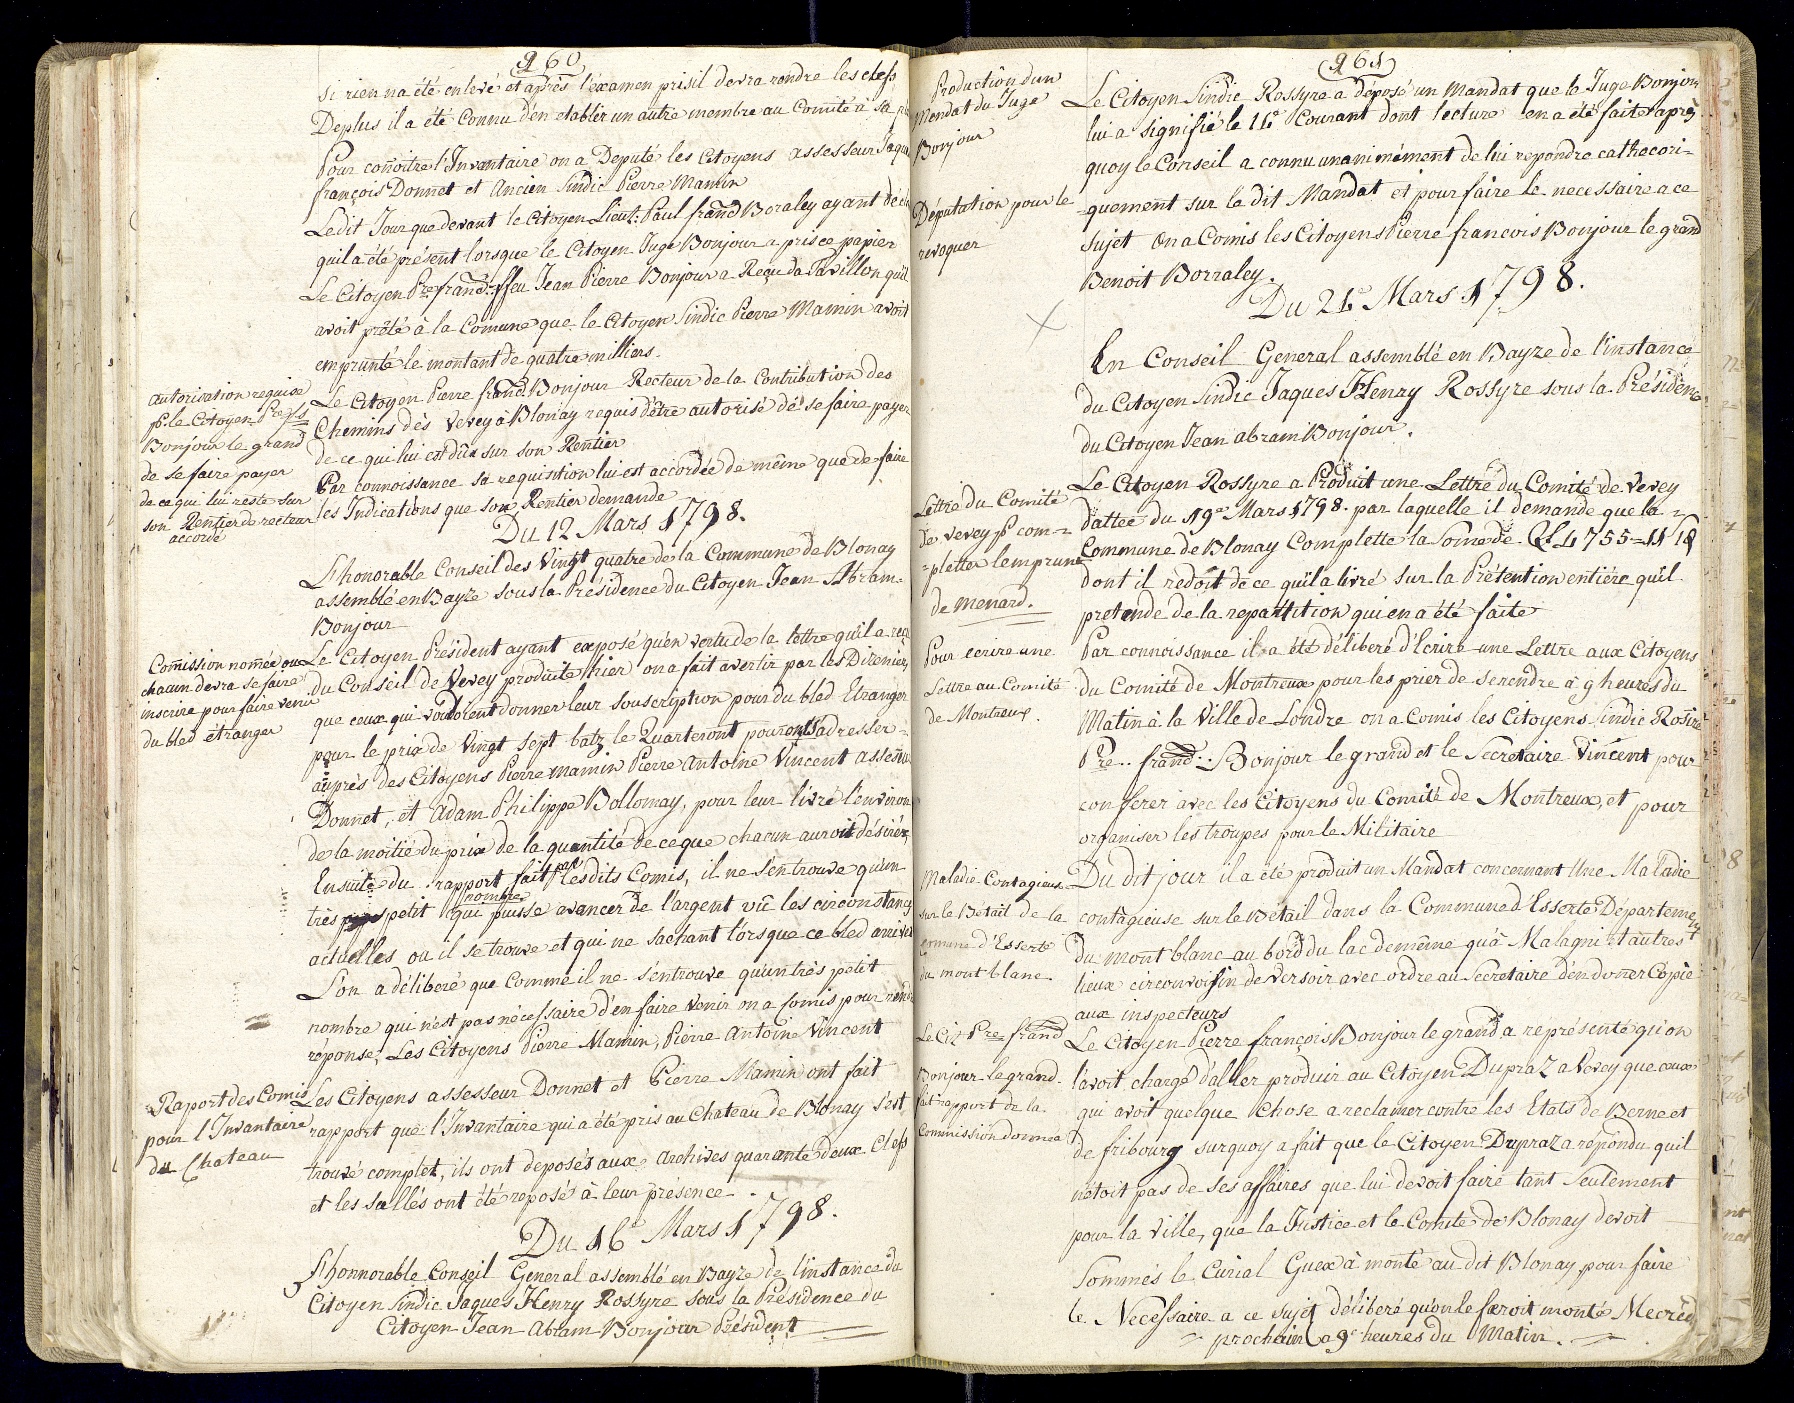 960
si rien na été enlevé et après l'examen pris il devra rendre les clefs
Deplus il a été Connu d'en etablir un autre membre au Comité à sa
Pour conoitre l'Invantaire on a Deputé les Citoyens assesseur Jaques
françois Donnet et Ancien Sindic Pierre Mamin
Ledit Jour que devant le Citoyen Lieut: Paul franç Boraley ayant
quil a été présent lorsque le Citoyen Juge Bonjour a pris ce papier
Le Citoyen Pre franç: ffeu Jean Pierre Bonjour a Reçu du Tavillon quil
avoit prêté à la Comune que le Citoyen Sindic Pierre Mamin avoit
emprunté le montant de quatre milliers.
autorisation requise
pr. le Citoyen Pre fs
Bonjour le grand
de se faire payer
de ce qui lui reste sur
son Rentier de recteur
accordé
Le Citoyen Pierre franç Bonjour Recteur de la Contribution des
Chemins dès Vevey à Blonay requis d'être autorisé dé se faire payer
de ce qui lui est dûe sur son Rentier
Par connoissance sa requisition lui est accordée de même que de faire
les Indications que son Rentier demande
Du 12 Mars 1798.
L'honorable Conseil des Vingt quatre de la Commune de Blonay
assemblé en Bayze sous la Présidence du Citoyen Jean Abram=
Bonjour
Comission nomée ou
chacun devra se faire
inscrire pour faire venir
du bled étranger
Le Citoyen Président ayant exposé qu'en vertu de la lettre qu'il a reçu
du Conseil de Vevey produite hier on a fait avertir par les Dizeniers
que ceux qui voudoient donner leur souscription pour du bled Etranger
pour le prix de Vingt sept batz le Quarteront pouront s'adresser=
auprès des Citoyens Pierre mamin Pierre Antoine Vincent
Donnet, et Adam Philippe Bollomay, pour leur livré l'environ
de la moitié du prix de la quantité de ce que chacun auroit désiré,
Ensuite du rapport fait par lesdits Comis, il ne s'en trouve qu'un
très petit nombre qui puisse avancer de l'argent vû les circonstances
actuelles ou il se trouve et qui ne sachant lorsque ce bled arrivet
L'on a déliberé que comme il ne s'entrouve qu'un très petit
nombre qui n'est pas nécessaire d'en faire venir on a Comis pour
réponse, Les Citoyens Pierre Mamin, Pierre Antoine Vincent
Raport des Comis
pour l'Invantaire
du Chateau
Les Citoyens assesseur Donnet et Pierre Mamin ont fait
rapport que l'Invantaire qui a été pris au Chateau de Blonay s'est
trouvé complet, ils ont deposés aux Archives quarante deux Clefs
et les Sellés ont été reposé à leur présence.
Du 16e Mars 1798.
L'honnorable Conseil General assemblé en Bayze de l'instance du
Citoyen Sindic Jaques Henry Rossyre sous la Présidence du
Citoyen Jean Abram Bonjour Président
961
Production d'un
Mendat du Juge
Bonjour
Députation pour le
revoquer
Le Citoyen Sindic Rossyre a déposé un Mandat que le Juge Bonjour
lui a signifié le 16e Courant dont lecture en a été faite après
quoy le Conseil a connu unanimément de lui repondre cathecori=
=quement sur la dit Mandat et pour faire le necessaire a ce
sujet on a Comis les Citoyens Pierre francois Bonjour le grand
Benoit Borraley.
Du 21e Mars 1798.
En Conseil General assemblé en Bayze de l'instance
du Citoyen Sindic Jaques Henry Rossyre sous la Présidence
du Citoyen Jean abram Bonjour.
Lettre du Comité
de vevey pr com=
=pletter lemprunt
de menard.
Le Citoyen Rossyre a Produit une Lettre du Comité de Vevey
dattée du 19e Mars 1798. par laquelle il demande que la =
Commune de Blonay Complette la Some de 4755=11
dont il redoit de ce quil a livré sur la Prétention entiére quil
pretende de la repartition qui en a été faite
Pour écrire une
Lettre au Comité
de Montreux.
Par connoissance il a été déliberé d'écrire une Lettre aux Citoyens
du Comité de Montreux pour les prier de se rendre à 9 heures du
Matin à la Ville de Londre on a Comis les Citoyens Sindic Rossire
Pre.. franç.. Bonjour le grand et le Secretaire Vincent pour
conferer avec les Citoyens du Comité de Montreux, et pour
organiser les troupes pour le Militaire
Maladie Contagieuse
sur le Bétail de la
comune d'Esserte
du mont blanc
Du dit jour il a été produit un Mandat concernant Une Maladie
contagieuse sur le Bétail dans la Commune d'Esserte Département
du mont blanc au bord du lac de même qu'à Malagni et autres
lieux circonvoisin de Versoir avec ordre au Secretaire d'en doner Copie
aux inspecteurs
Le Cit Pre franç
Bonjour le grand
fait rapport de la
Commission donnée
Le Citoyen Pierre françois Bonjour le grand a représenté qu'on
l'avoit chargé d'aller produir au Citoyen Dupraz a Vevey que ceux
qui avoit quelque Chose a reclamer contre les Etats de Berne et
de fribourg surquoy a fait que le Citoyen Dupraz a repondu quil
nétoit pas de ses affaires que lui devoit faire tant Seulement
pour la Ville, que la Justice et le Comité de Blonay devoit
Sommés le Curial Guex à monté au dit Blonay pour faire
le Necéssaire a ce sujet déliberé qu'on le feroit monté Mecredi
prochain a 9e heures du Matin.